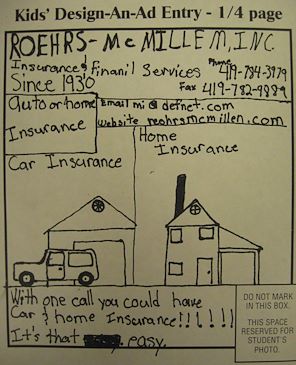 Kids' Design-An-Ad Entry - 1/4 page
ROEHRS-McMILLEM, INC.
Insurance & Finanil Services Phone 419-784-3979
Since 1930 Fax 419-782-9889
Auto or home
Insurance
Email mi@defnet.com
Website reohrsmcmillen.com
Home
Insurance
Car Insurance
With one call you could have
Car & home Insurance!!!!!!
It's that easy.
DO NOT MARK
IN THIS BOX.
THIS SPACE
RESERVED FOR
STUDENT'S
PHOTO.